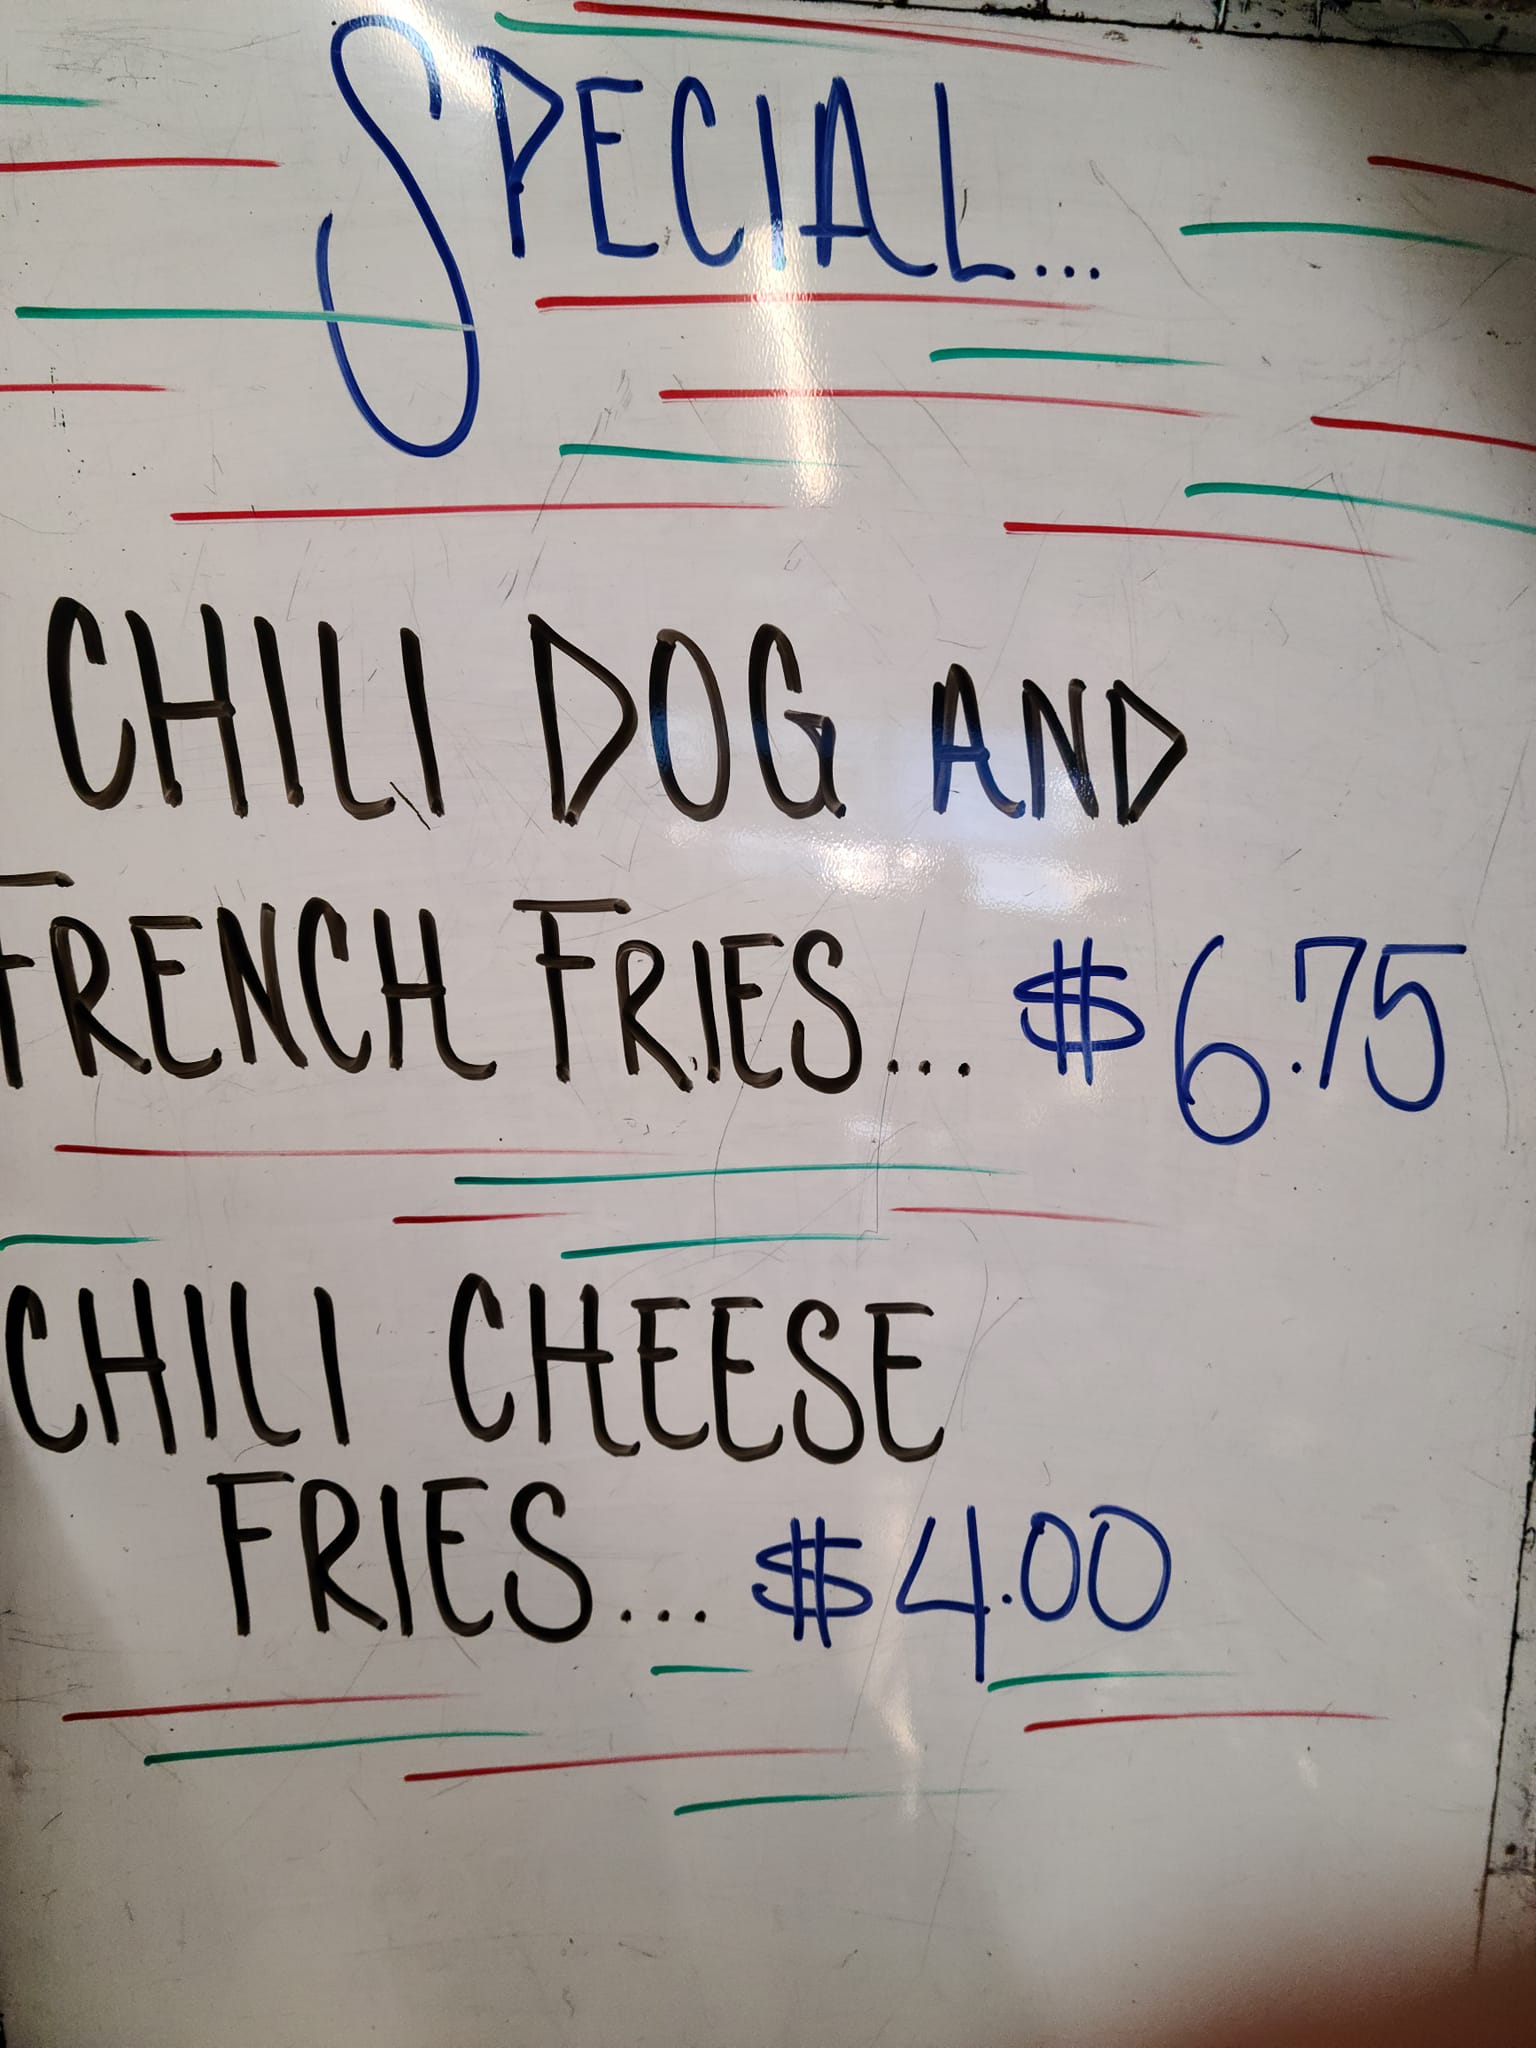 SPECIAL...
CHILI DOG AND
FRENCH FRIES... $6.75
CHILI CHEESE
FRIES... $4.00